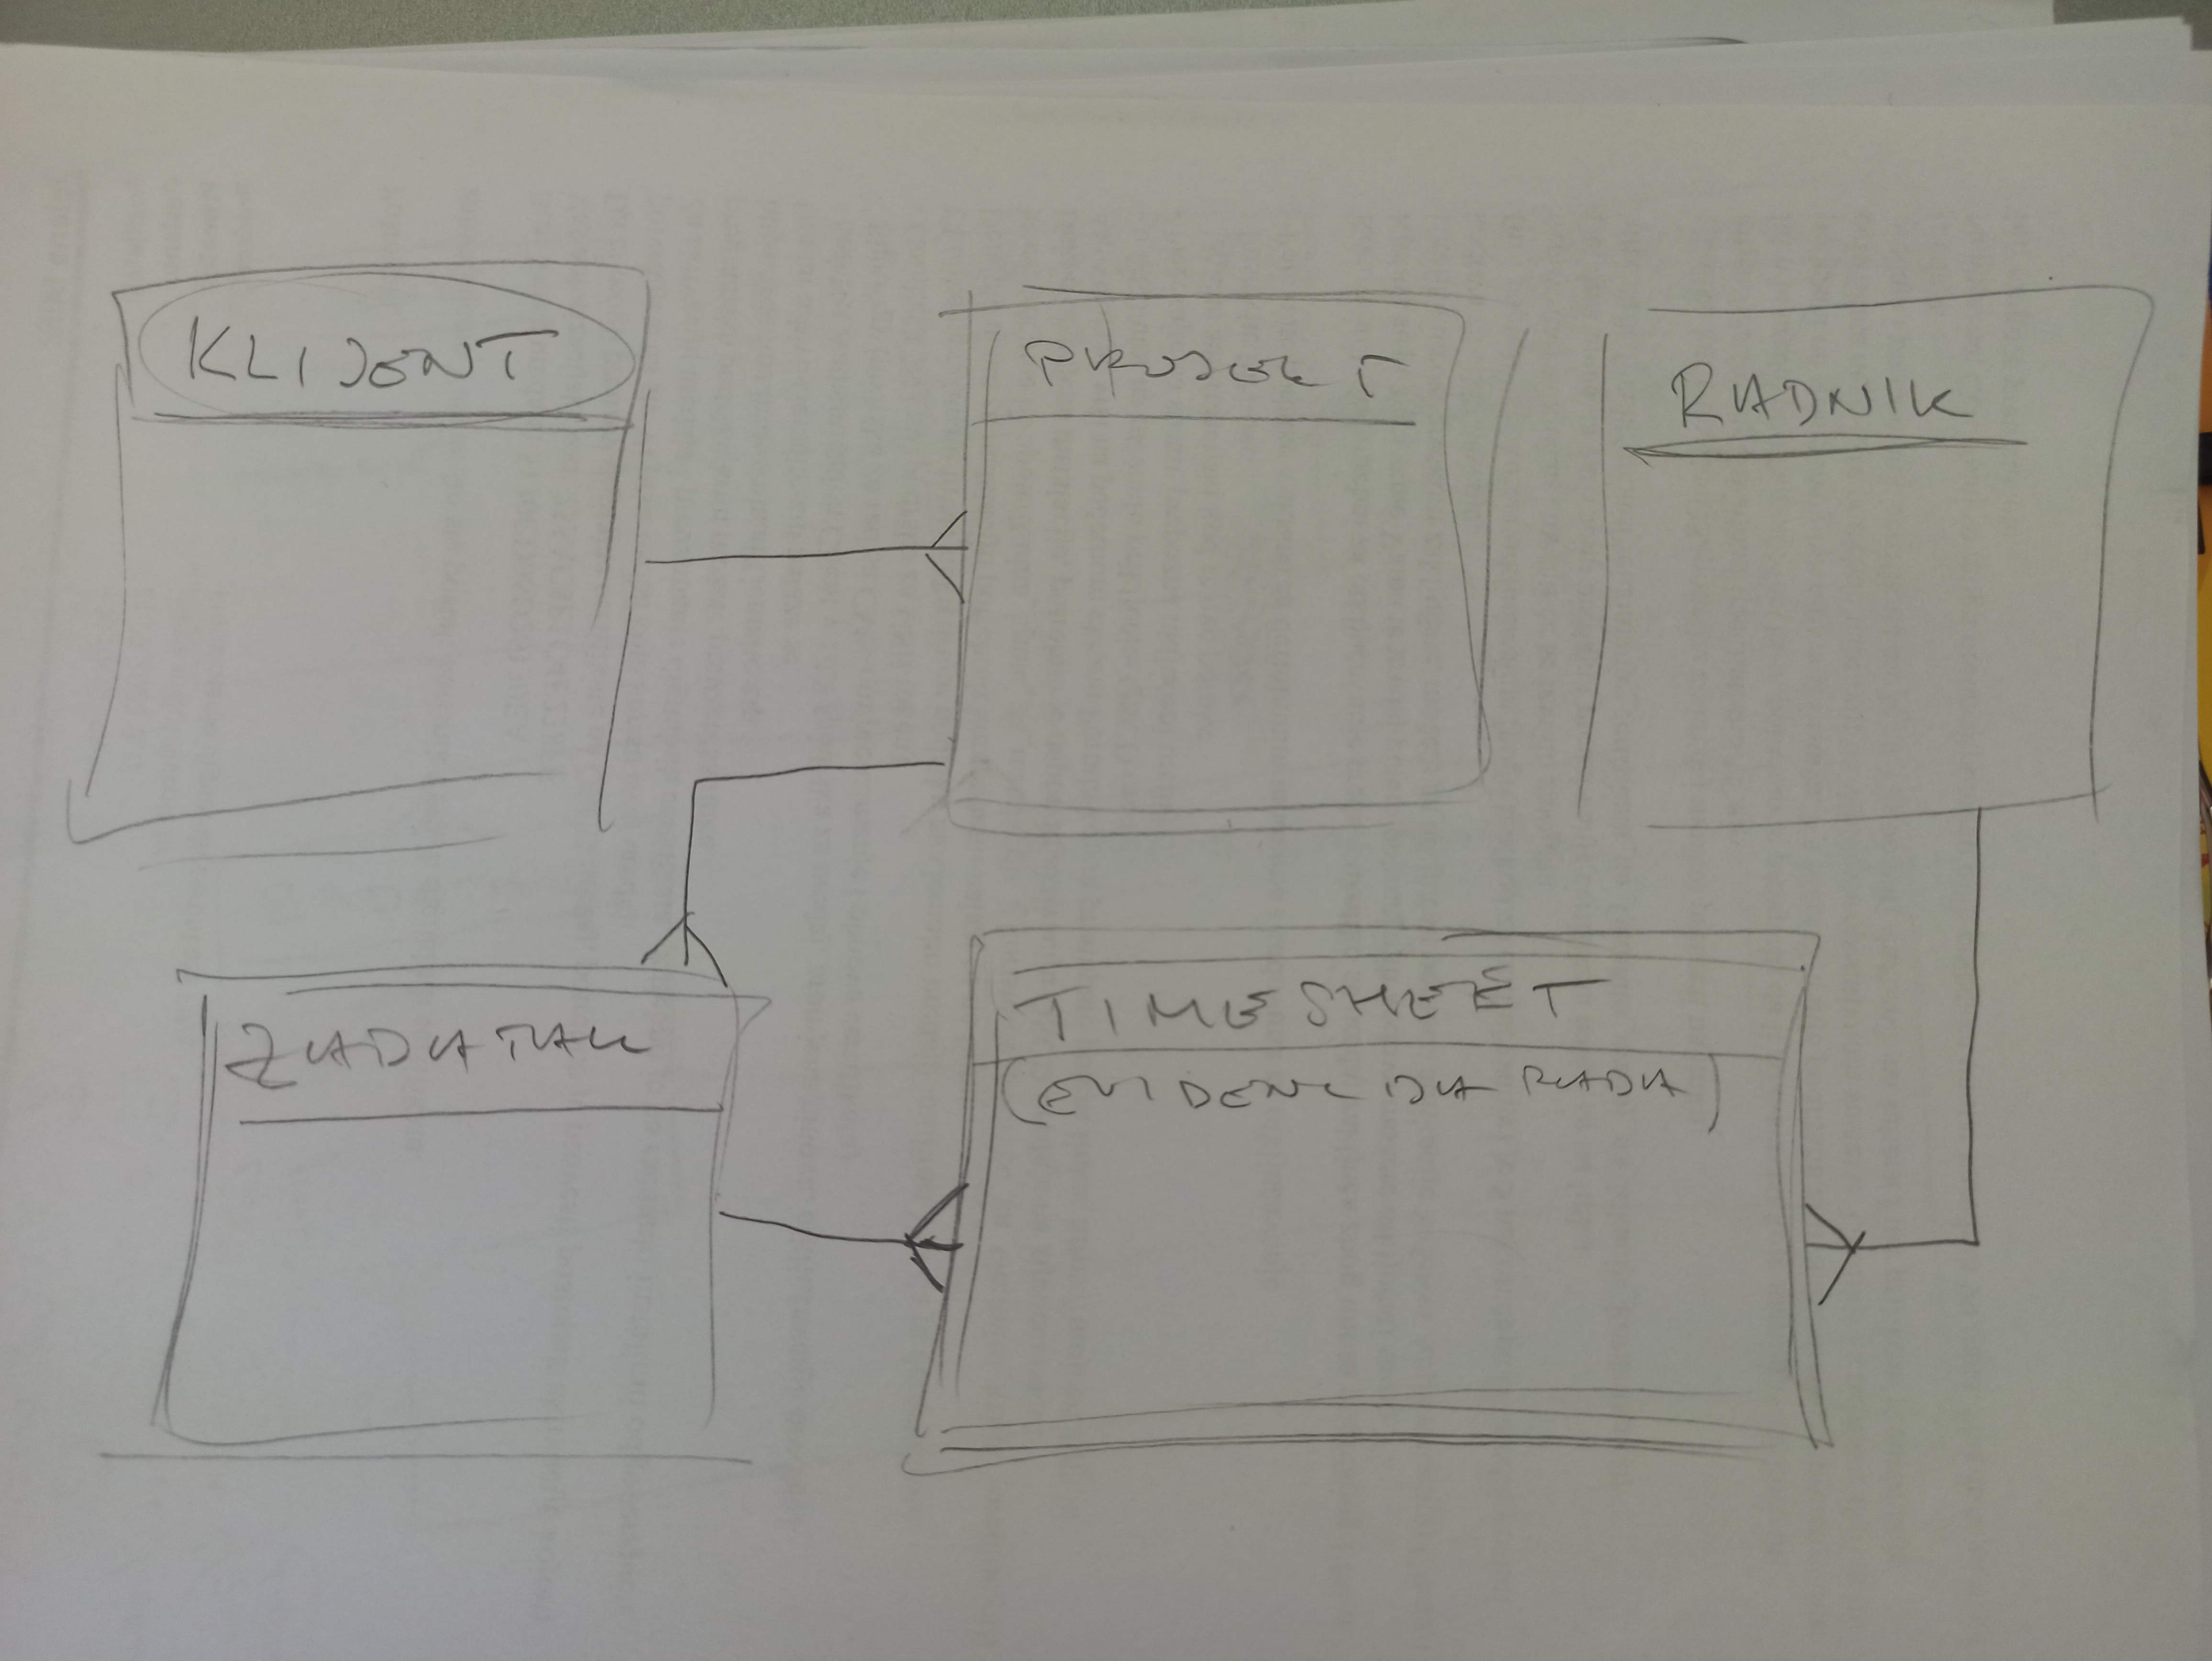 KLIJENT
PROJEKT
RADNIK
ZADATAK
TIMESHEET
(EVIDENCIJA RADA)